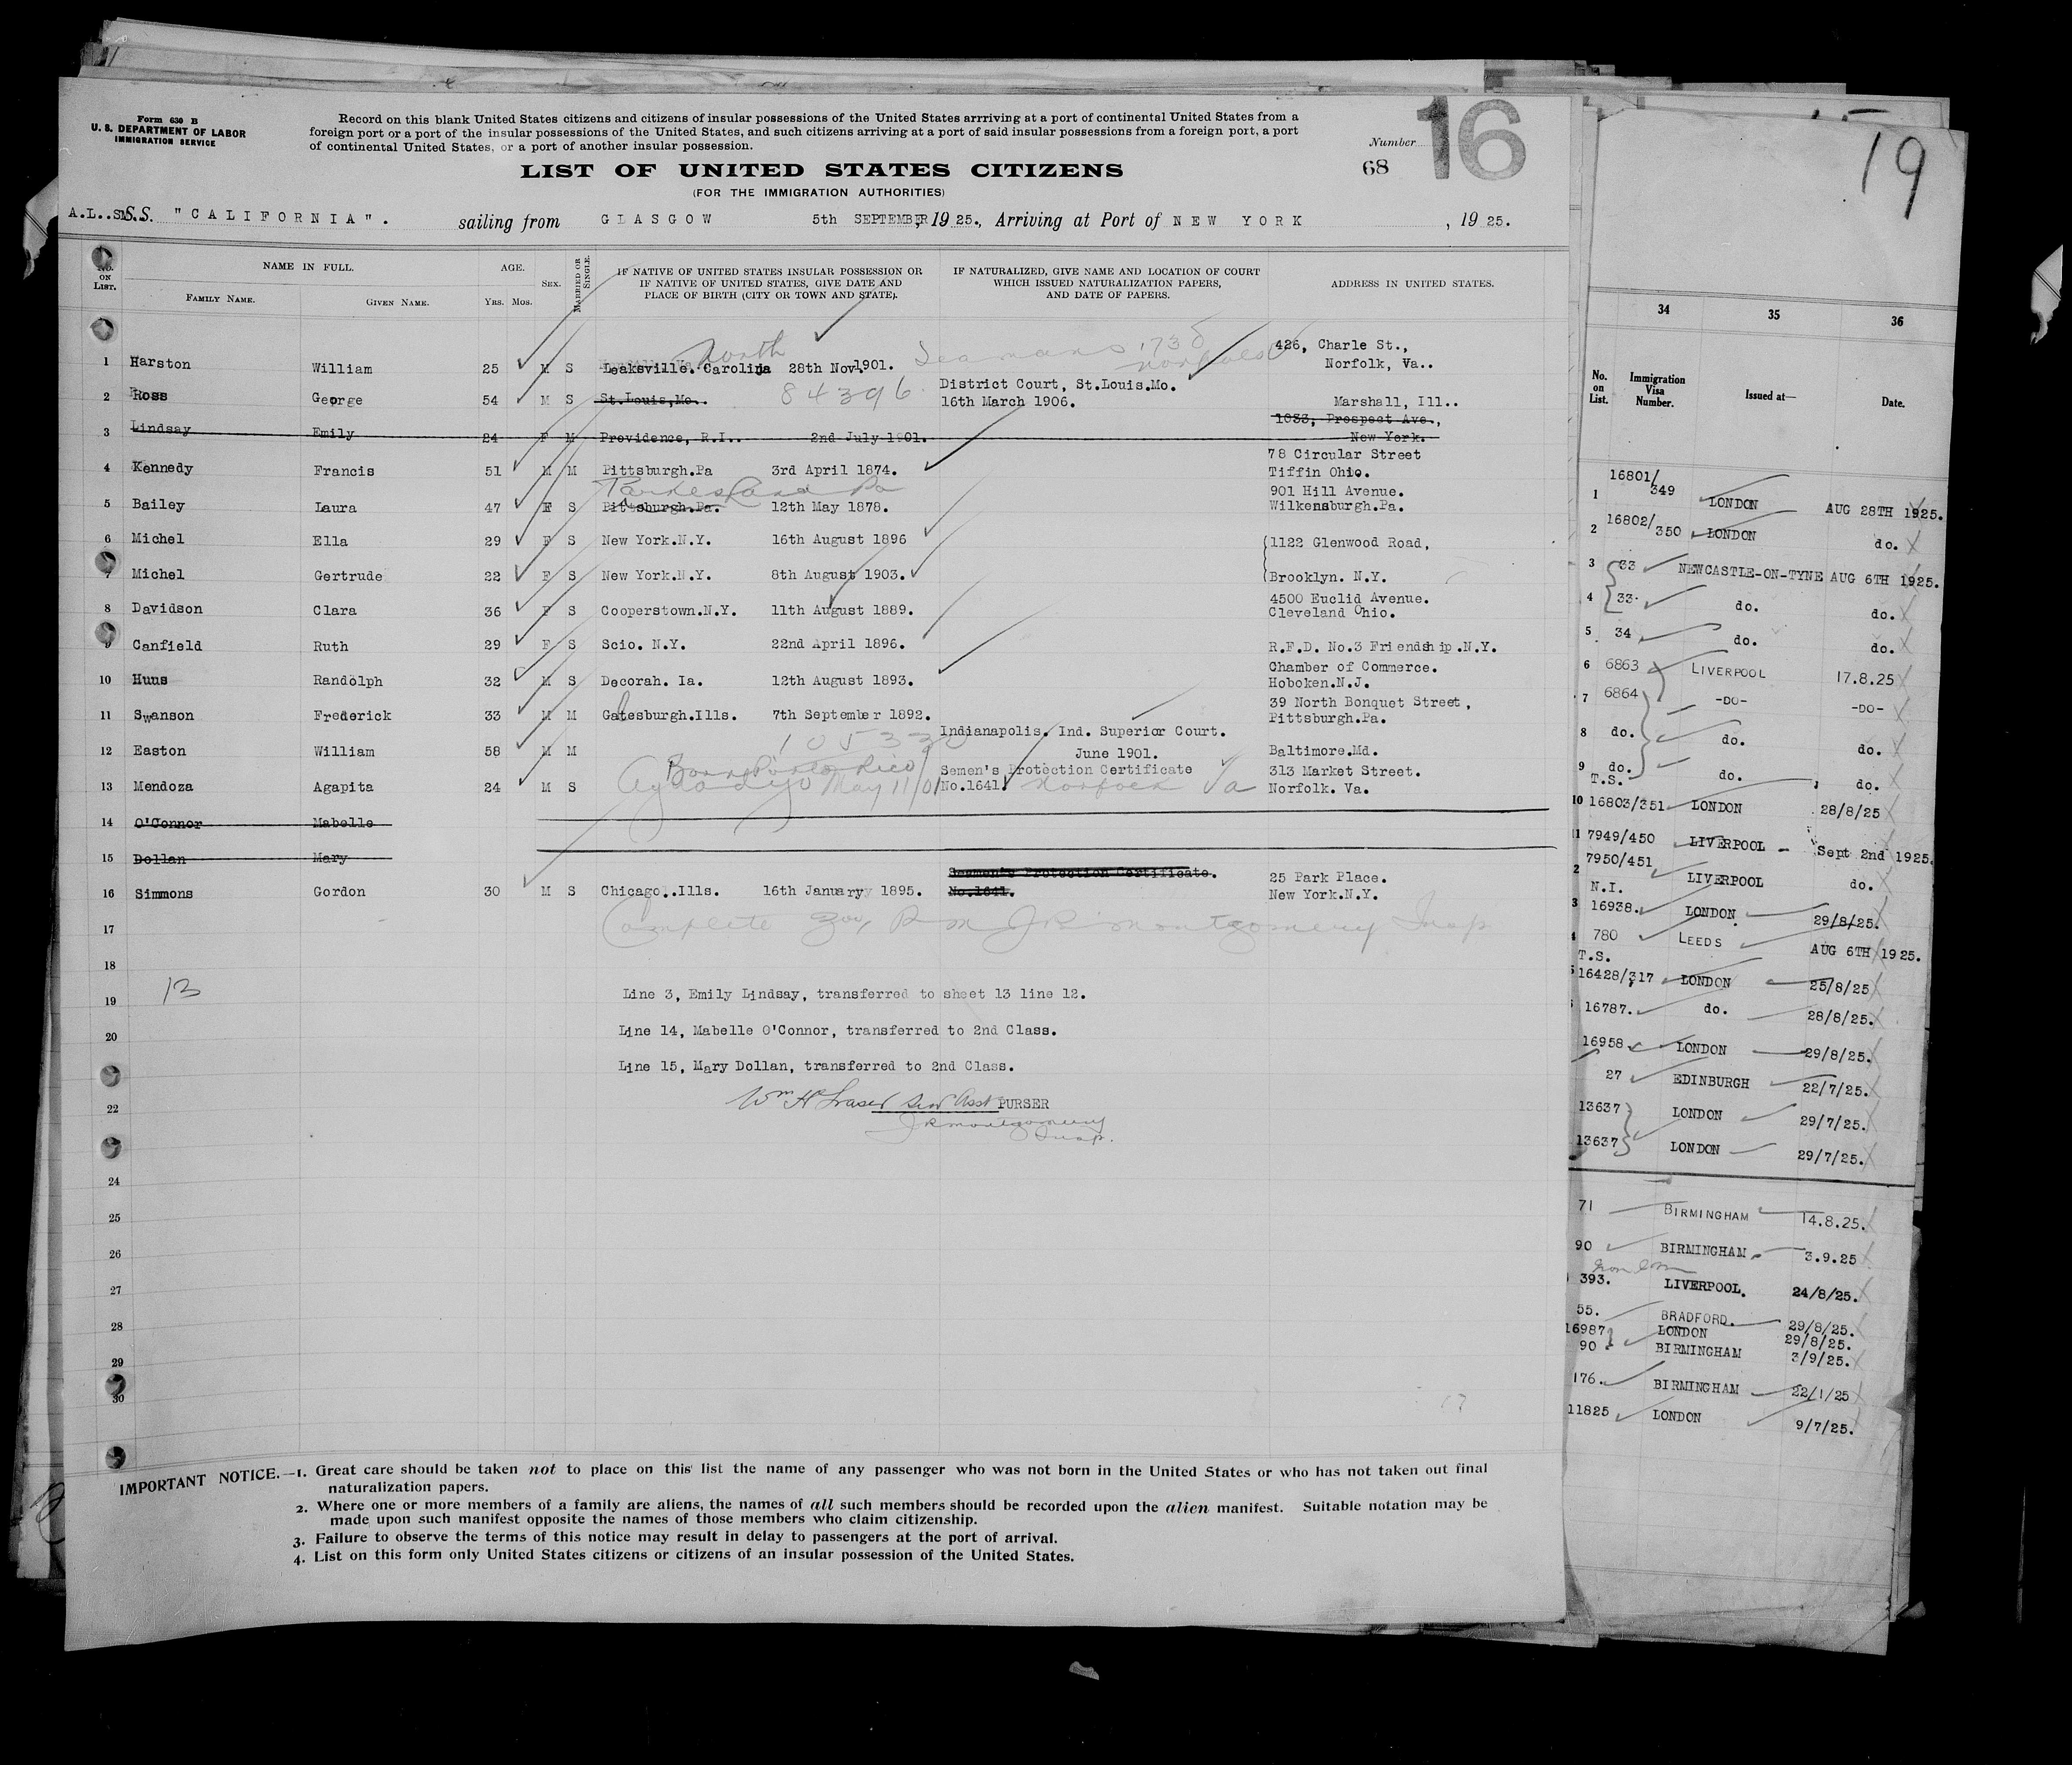 Form 630 B
U. S. DEPARTMENT OF LABOR
IMMIGRATION SERVICE
Record on this blank United States citizens and citizens of insular possessions of the United States arrriving at a port of continental United States from a
foreign port or a port of the insular possessions of the United States, and such citizens arriving at a port of said insular possessions from a foreign port, a port
of continental United States, or a port of another insular possession.
Number
16
68
LIST OF UNITED STATES CITIZENS
(FOR THE IMMIGRATION AUTHORITIES)
S.S. "CALIFORNIA". sailing from GLASGOW 5th SEPTEMBER, 1925., Arriving at Port of NEW YORK , 1925.
NO. ON LIST.
NAME IN FULL.
FAMILY NAME. GIVEN NAME.
AGE.
YRS. MOS.
SEX.
MARRIED OR SINGLE.
IF NATIVE OF UNITED STATES INSULAR POSSESSION OR
IF NATIVE OF UNITED STATES, GIVE DATE AND
PLACE OF BIRTH (CITY OR TOWN AND STATE).
IF NATURALIZED, GIVE NAME AND LOCATION OF COURT
WHICH ISSUED NATURALIZATION PAPERS,
AND DATE OF PAPERS.
ADDRESS IN UNITED STATES.
North Seamans 1730 426, Charle St.,
1 Harston William 25 M S Leaksville. Carolina 28th Nov.1901. Norfolk Norfolk, Va..
84396 District Court, St.Louis.Mo.
2 Ross George 54 M S St.Louis,Mo.. 16th March 1906. Marshall, Ill..
1033, Prospect Ave.,
3 Lindsay Emily 24 F M Providence, R.I.. 2nd July 1901. New York.
78 Circular Street
4 Kennedy Francis 51 M M Pittsburgh.Pa 3rd April 1874. Tiffin Ohio.
Parkesland Pa 901 Hill Avenue.
5 Bailey Laura 47 F S Pittsburgh.Pa. 12th May 1878. Wilkensburgh.Pa.
6 Michel Ella 29 F S New York.N.Y. 16th August 1896 1122 Glenwood Road,
7 Michel Gertrude 22 F S New York.N.Y. 8th August 1903. Brooklyn. N.Y.
4500 Euclid Avenue.
8 Davidson Clara 36 F S Cooperstown.N.Y. 11th August 1889. Cleveland Ohio.
9 Canfield Ruth 29 F S Scio. N.Y. 22nd April 1896. R.F.D. No.3 Friendship.N.Y.
Chamber of Commerce.
10 Huus Randolph 32 M S Decorah. Ia. 12th August 1893. Hoboken.N.J.
39 North Bonquet Street,
11 Swanson Frederick 33 M M Galesburgh.Ills. 7th September 1892. Pittsburgh.Pa.
105330 Indianapolis. Ind. Superior Court.
12 Easton William 58 M M June 1901. Baltimore.Md.
Born Porto Rico Semen's Protection Certificate 313 Market Street.
13 Mendoza Agapita 24 M S May 11/01 No.1641. Norfolk Va Norfolk. Va.
14 O'Connor Mabelle
15 Dollan Mary
Seamen's Protection Certificate. 25 Park Place.
16 Simmons Gordon 30 M S Chicago..Ills. 16th January 1895. No.1641. New York.N.Y.
17 Complete J R Montgomery Insp
18
19 13 Line 3, Emily Lindsay, transferred to sheet 13 line 12.
20 Line 14, Mabelle O'Connor, transferred to 2nd Class.
Line 15, Mary Dollan, transferred to 2nd Class.
22 Wm H Fraser Asst PURSER
J R Montgomery
Insp.
24
25
26
27
28
29
30
17
IMPORTANT NOTICE.—1. Great care should be taken not to place on this list the name of any passenger who was not born in the United States or who has not taken out final
naturalization papers.
2. Where one or more members of a family are aliens, the names of all such members should be recorded upon the alien manifest. Suitable notation may be
made upon such manifest opposite the names of those members who claim citizenship.
3. Failure to observe the terms of this notice may result in delay to passengers at the port of arrival.
4. List on this form only United States citizens or citizens of an insular possession of the United States.
19
34 35 36
No. on List.
Immigration Visa Number.
Issued at—
Date.
1 16801/349 LONDON AUG 28TH 1925.
2 16802/350 LONDON do.
3 33 NEWCASTLE-ON-TYNE AUG 6TH 1925.
4 33. do. do.
5 34 do. do.
6 6863 LIVERPOOL 17.8.25
7 6864 -DO- -DO-
8 do. do. do.
9 do. do. do.
T.S.
10 16803/351 LONDON 28/8/25
11 7949/450 LIVERPOOL Sept 2nd 1925.
2 7950/451 LIVERPOOL do.
N.I.
3 16938. LONDON 29/8/25.
780 LEEDS AUG 6TH 1925.
T.S.
16428/317 LONDON 25/8/25
16787. do. 28/8/25.
16958 LONDON 29/8/25.
27 EDINBURGH 22/7/25.
13637 LONDON 29/7/25.
13637 LONDON 29/7/25.
71 BIRMINGHAM 14.8.25.
90 BIRMINGHAM 3.9.25
393. LIVERPOOL. 24/8/25.
55. BRADFORD. 29/8/25.
16987 LONDON 29/8/25.
90 BIRMINGHAM 3/9/25.
176. BIRMINGHAM 22/1/25
11825 LONDON 9/7/25.